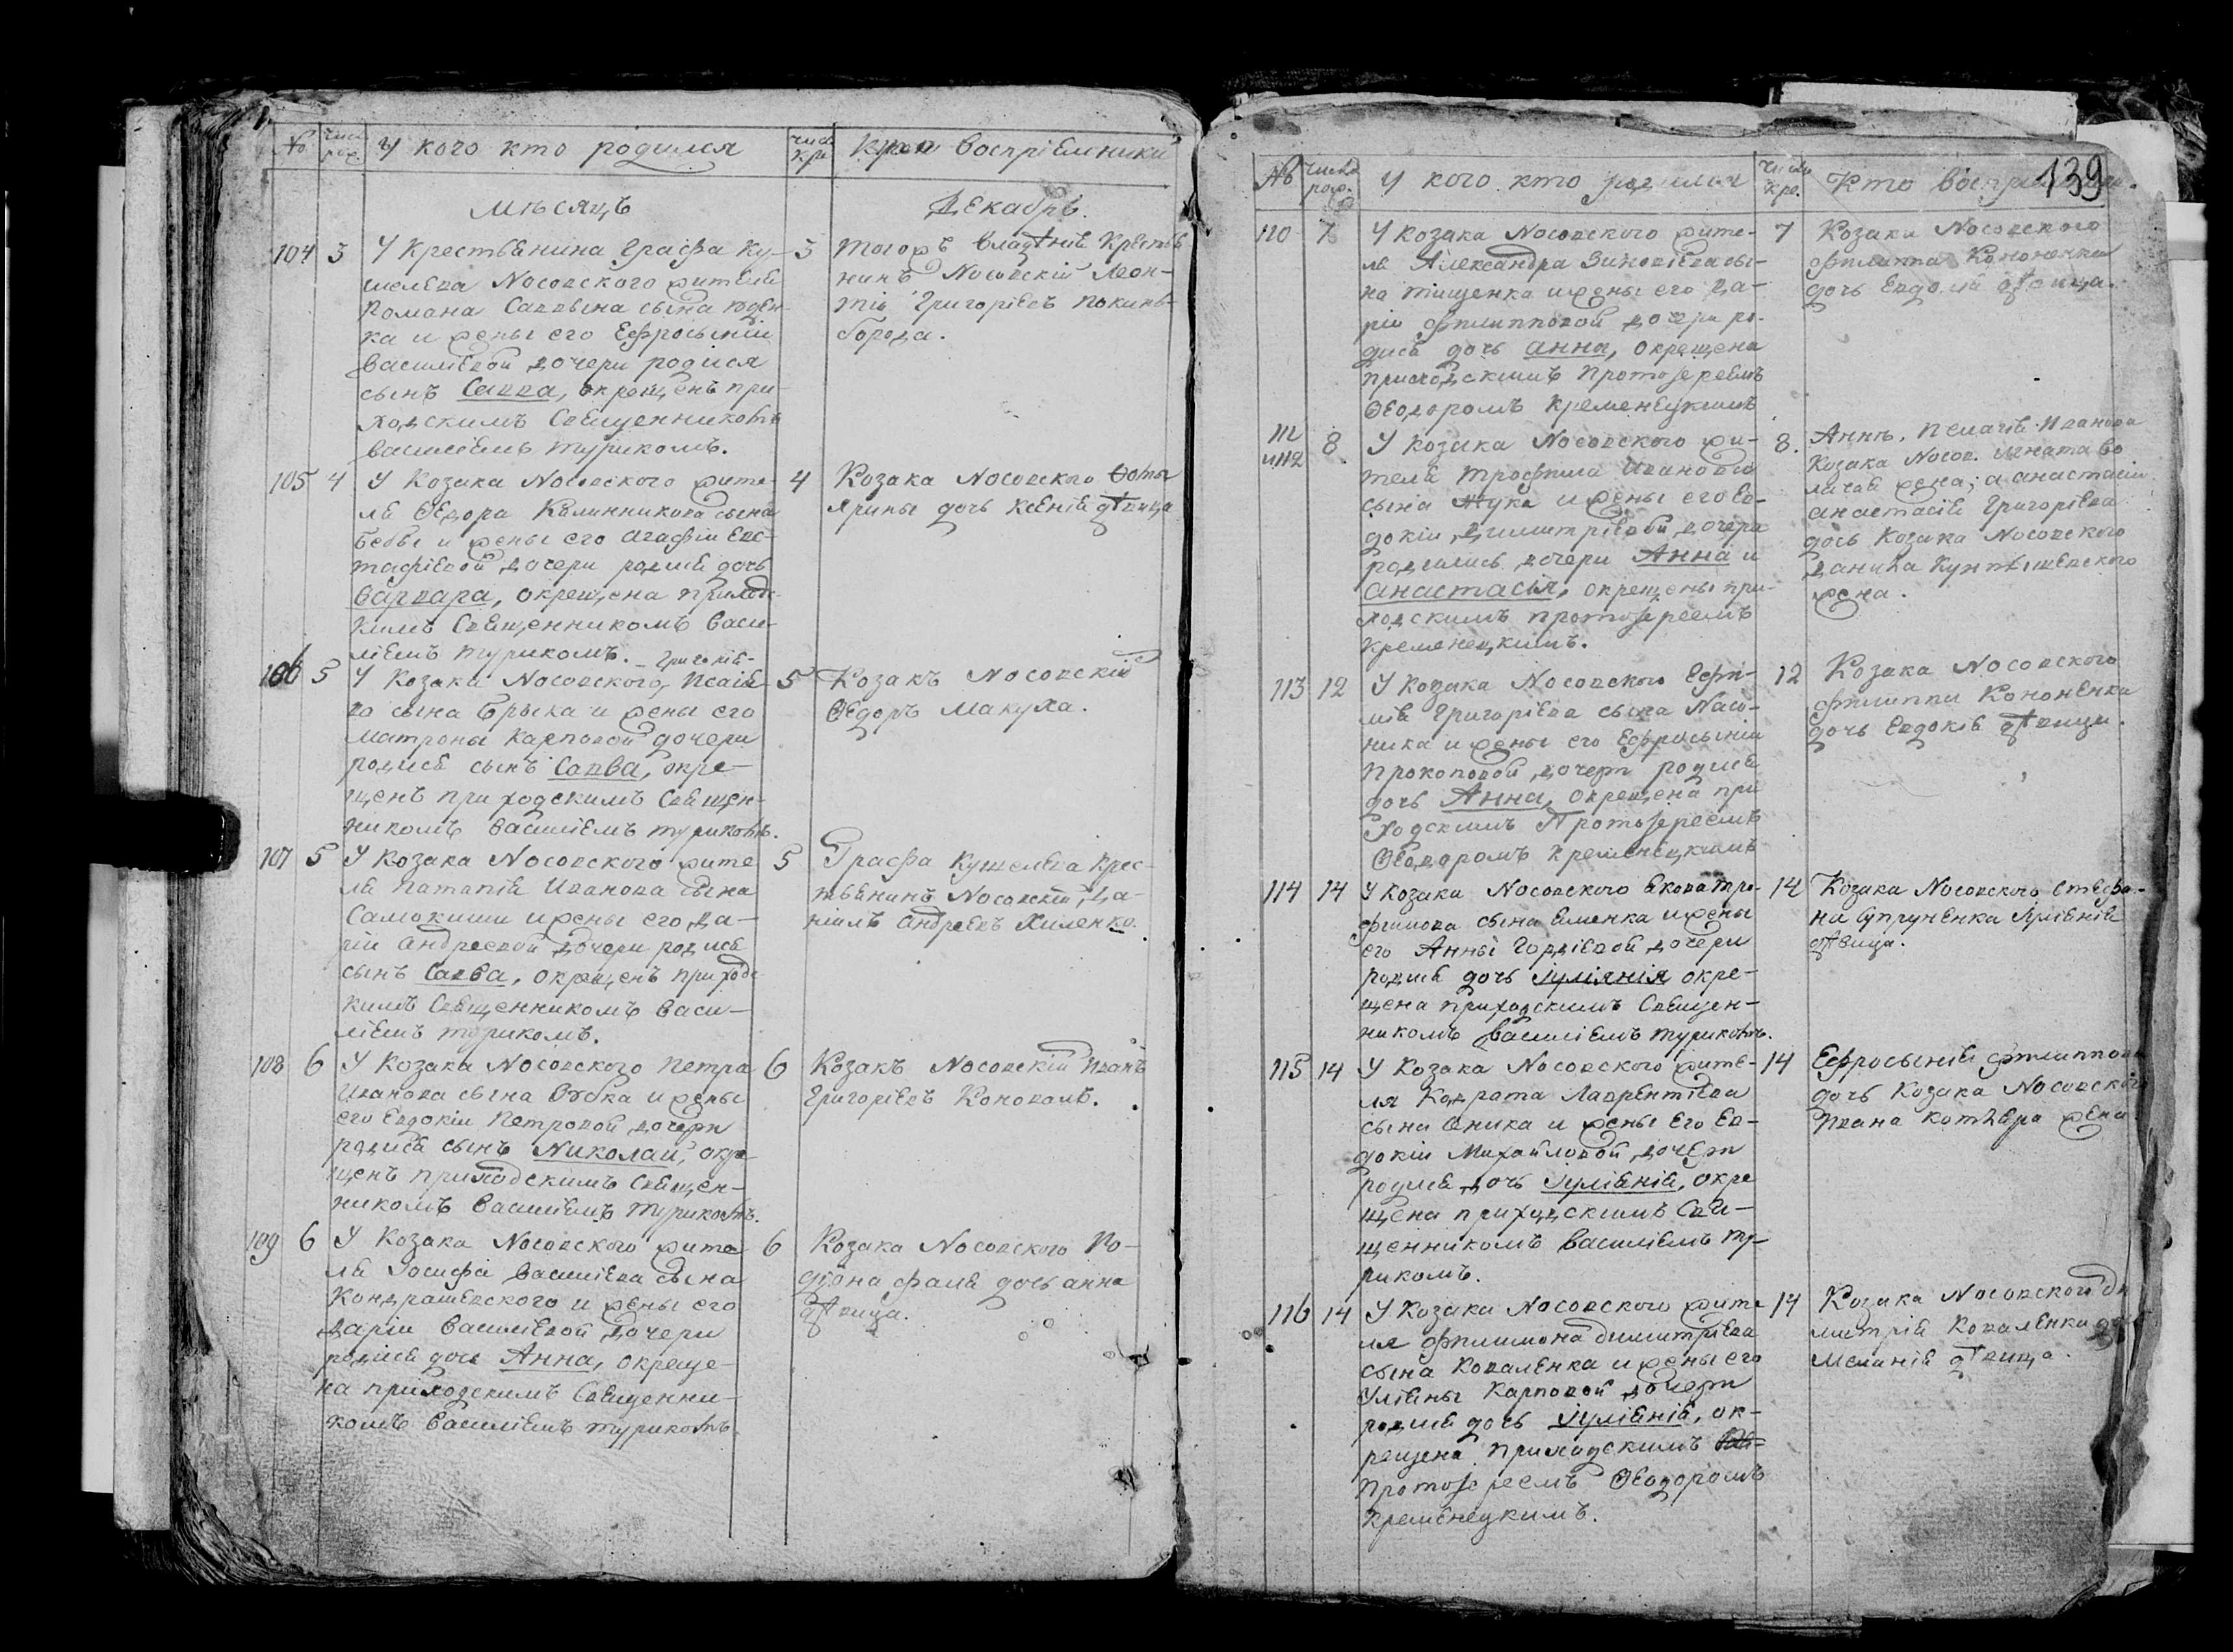 № числ. рож. У кого кто родился числ. кре. Кто воспріемники
Мѣсяцъ Декабрь.
104 3 У Крестьянина Графа Ку-
шелева Носовского жителя
Романа Саввына сына
ка и жены его Ефросыніи
Василіевой дочери родился
сынъ Савва, окрещенъ при-
ходскимъ Священникомъ
Василіемъ Турикомъ.
3 Тогожъ владѣнія Крестья
нинъ Носовскій Леон-
тій Григоріевъ Покинь-
борода.
105 4 У Козака Носовского жите-
ля Ѳеодора Калинникова сына
Бебы и жены его Агафіи Евс-
тафіевой дочери родися дочь
Варвара, окрещена приходс
кимъ Священникомъ Васи-
ліемъ Турикомъ.
4 Козака Носовского Ѳомы
Ярины дочь Ксенія дѣвица
106 5 У Козака Носовского, Исаія Григоріе-
го сына Брыка и жены его
Матроны Карповой дочери
родися сынъ Савва, окре-
щенъ приходскимъ Священ-
никомъ Василіемъ Турикомъ.
5 Козакъ Носовскій
Ѳеодоръ Макуха.
107 5 У Козака Носовского жите
ля Патапія Иванова сына
Самокиши и жены его Да-
ріи Андреевой дочери родися
сынъ Савва, окрещенъ приходс
кимъ Священникомъ Васи-
ліемъ Турикомъ.
5 Графа Кушелева Крес-
тьянинъ Носовскій, Да-
ніилъ Андреевъ Хиленко.
108 6 У Козака Носовского Петра
Иванова сына и жены
его Евдокіи Петровой дочери
родися сынъ Николай, окре-
щенъ приходскимъ Священ-
никомъ Василіемъ Турикомъ.
6 Козакъ Носовскій Иванъ
Григоріевъ Коновалъ.
109 6 У Козака Носовского жите
ля Іосифа Василіева сына
Кондрашевского и жены его
Даріи Василіевой дочери
родися дочь Анна, окреще-
на приходскимъ Священни-
комъ Василіемъ Турикомъ
6 Козака Носовского Ро-
діона Фаля дочь Анна
дѣвица.
139
№ числа рож. У кого кто родился числа кре. Кто воспріемники.
110 7 У Козака Носовского жите-
ля Александра Зиновіева сы-
на Тищенка и жены его Да-
ріи Филипповой дочери ро-
дись дочь Анна, окрещена
приходскимъ Протоіереемъ
Ѳеодоромъ Кременецкимъ
7 Козака Носовского
Филиппа Кононенка
дочь Евдокія дѣвица.
111 и 112 8 У Козака Носовского жи-
теля Трофима Иванова
сына Жука и жены его Ев-
докіи Димитріевой дочери
родились дочери Анна и
Анастасія, окрещены при-
ходскимъ Протоіереемъ
Кременецкимъ.
8. Аннѣ, Пелагія Иванова
Козака Носов. Игната Во
лачая жена; а Анастасіи
Анастасія Григоріева
дочь Козака Носовского
Данила
жена.
113 12 У Козака Носовского Ефи-
мія Григоріева сына Насо-
ника и жены его Ефросыніи
Прокоповой дочери родися
дочь Анна, окрещена при
ходскимъ Протоіереемъ
Ѳеодоромъ Кременецкимъ
12 Козака Носовского
Филиппа Кононенка
дочь Евдокія дѣвица.
114 14 У Козака Носовского Якова Тро-
фимова сына и жены
его Анны Гордіевой дочери
родися дочь Іуліянія окре-
щена приходскимъ Священ-
никомъ Василіемъ Турикомъ.
14 Козака Носовского Стефа-
на Супруненка Іуліянія
дѣвица.
115 14 У Козака Носовского жите-
ля Кодрата Лаврентіева
сына Оника и жены его Ев-
докіи Михайловой дочери
родися дочь Іуліянія, окре
щена приходскимъ Свя-
щенникомъ Василіемъ Ту-
рикомъ.
14 Ефросынія Филиппова
дочь Козака Носовского
Ивана жена
116 14 У Козака Носовского жите
ля Филимона Димитріева
сына Коваленка и жены его
Уліяны Карповой дочери
родися дочь Іуліянія, ок-
рещена приходскимъ
Протоіереемъ Ѳеодоромъ
Кременецкимъ.
14 Козака Носовского Ди
митрія Коваленка дочь
Меланія дѣвица.